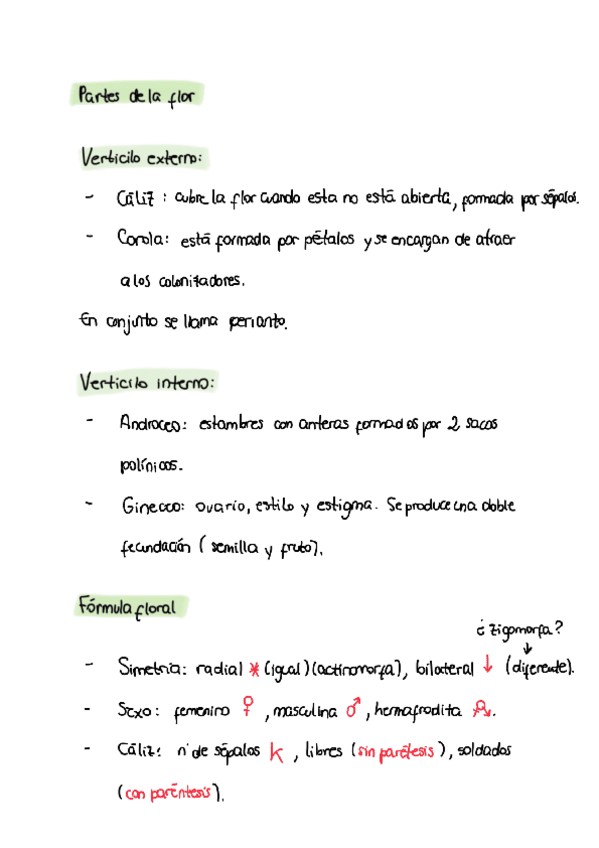 Partes de la flor
Verticilo externo:
- Cáliz : cubre la flor cuando esta no está abierta, formada por sépalos.
- Corola: está formada por pétalos y se encargan de atraer
a los colonizadores.
En conjunto se llama perianto.
Verticilo interno:
- Androceo: estambres con anteras formados por 2 sacos
polínicos.
- Gineceo: ovario, estilo y estigma. Se produce una doble
fecundación (semilla y fruto).
Fórmula floral
¿zigomorfa?
↓
- Simetría: radial * (igual) (actinomorfa), bilateral ↓ (diferente).
- Sexo: femenino ♀, masculina ♂, hermafrodita ⚥.
- Cáliz: nº de sépalos K, libres (sin parétesis), soldados
(con paréntesis).